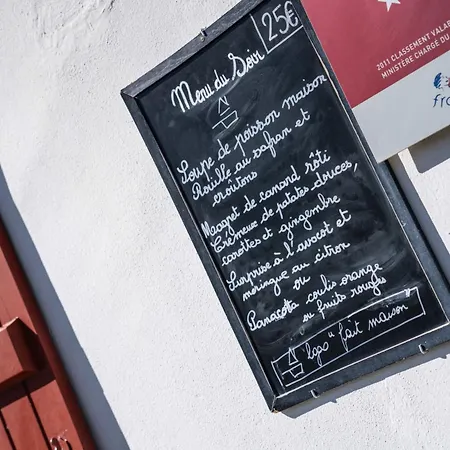 25€
Menu du Soir
Soupe de poisson maison
Rouille au safran et
croûtons
Magret de canard rôti
Crémeux de patates douces,
carottes et gingembre
Surprise à l'avocat et
meringue au citron
ou
Panacotta coulis orange
ou fruits rouges
logo "fait maison"
2011 CLASSEMENT VALAB
MINISTÈRE CHARGÉ DU